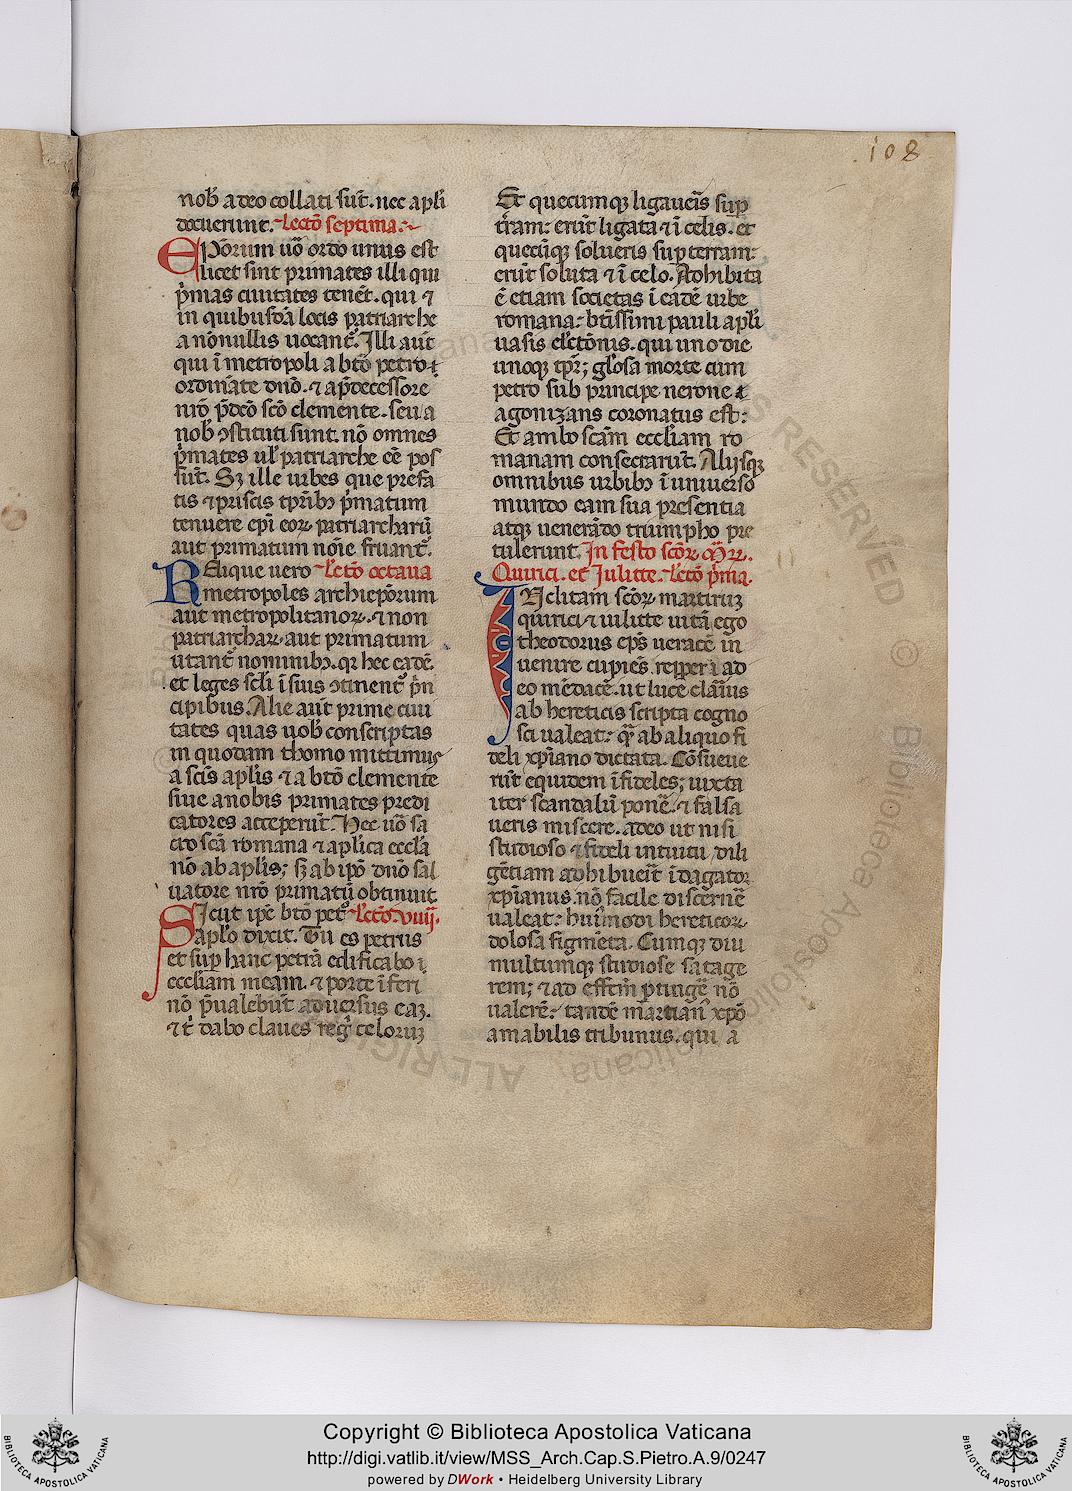 108
nob̅ adeo collati sūt. nec apl̅i
docuerunt. Lectō septima.
EPorum uō ordo unus est
licet sint primates illi qui
p̍mas ciuitates tenēt. qui ⁊
in quibusdā locis patriarche
a nōnullis uocant᷑. Illi aut̄
qui ī metropoli a btō petro
ordināte dnō. ⁊ a p̄decessore
nr̄o p̄dcō scō clemente. seu a
nob̅ ꝯstituti sunt. nō omnes
p̍mates ul̅ patriarche eē pos
sūt. Sꝫ ille urbes que prefa
tis ⁊ priscis tp̄ribꝰ p̍matum
tenuere ep̄i eoꝝ patriarcharū
aut primatum noīe fruant᷑.
RElique uero Lectō octaua
metropoles archiep̄orum
aut metropolitanoꝝ. ⁊ non
patriarchaꝝ aut primatum
utant᷑ nominibꝰ. qꝛ hec eadē
et leges scl̅i ī suis ꝯtinent᷑ p̍n
cipibus. Alie aut̄ prime ciui
tates quas uob̅ conscriptas
in quodam thomo mittimus
a scīs apl̅is ⁊ a btō clemente
siue a nobis primates predi
catores acceperūt. Hec uō sa
cro scā romana ⁊ apl̅ica eccl̅a
nō ab apl̅is; sꝫ ab ip̄o dnō sal
uatore nr̄o primatū obtinuit
Sicut ip̄e btō pet᷑ Lectō. viiij.
apl̅o dixit. Tu es petrus
et sup̱ hanc petrā edificabo
eccl̅iam meam. ⁊ porte īferi
nō p̄ualebūt aduersus eaꝫ.
⁊ t̍ dabo claues regͥ celoruꝫ
Et quecumqꝫ ligaueris̄ sup̱
t̄ram: erūt ligata ⁊ ī celis. et
quecūqꝫ solueris sup̱ terram:
erūt soluta ⁊ ī celo. Adhibita
ē etiam societas ī eadē urbe
romana: btīssimi pauli apl̅i
uasis el̅ctōnis. qui uno die
unoqꝫ tp̄r; gl̅osa morte cum
petro sub principe nerone
agonizans coronatus est:
Et ambo scām eccl̅iam ro
manam consecrarūt. Aliisqꝫ
omnibus urbibꝰ ī uniuerso
mundo eam sua presentia
atqꝫ uenerādo triumpho pre
tulerunt. In festo scōꝝ mr̄ꝝ.
Quirici. et Julitte. Lectō p̍ma.
INclitam scōꝝ martiruꝫ
quirici ⁊ iulitte uitā ego
theodorus ep̄s ueracē in
uenire cupiēs. repperi ad
eo mēdacē. ut luce clarīus
ab hereticis scripta cogno
sci ualeat: qͣ ab aliquo fi
deli xp̄iano dictata. Cōsueue
rūt equidem īfideles; iuxta
iter scandalū ponē. ⁊ falsa
ueris miscere. adeo ut nisi
studioso ⁊ fideli intuitu dili
gētiam adhibuerīt īdagator
xp̄ianus. nō facile discernē
ualeat: huīmodi hereticoꝝ
dolosa figmēta. Cumqꝫ diu
multumqꝫ studiose satage
rem; ⁊ ad effēm p̱tingē nō
ualerē: tandē martianꝰ xp̄o
amabilis tribunus. qui a
ALL RIGHTS RESERVED
© Biblioteca Apostolica Vaticana
Copyright © Biblioteca Apostolica Vaticana
http://digi.vatlib.it/view/MSS_Arch.Cap.S.Pietro.A.9/0247
powered by DWork • Heidelberg University Library
BIBLIOTECA APOSTOLICA VATICANA
BIBLIOTECA APOSTOLICA VATICANA